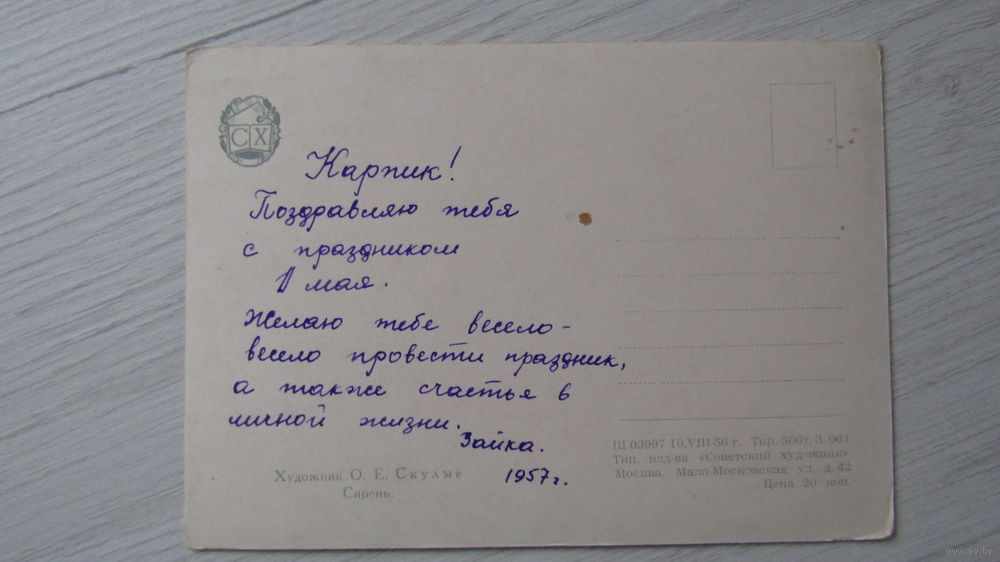 СХ
Карпик!
Поздравляю тебя
с праздником
1 мая.
Желаю тебе весело-
весело провести праздник,
а также счастья в
личной жизни.
Зайка.
1957 г.
Художник О. Е. Скулме
Сирень.
Ш 03997 10.VIII-56 г. Тир. 500т. З. 963
Тип. изд-ва «Советский художник»
Москва, Мало-Московская ул., д. 42
Цена 20 коп.
www.ay.by